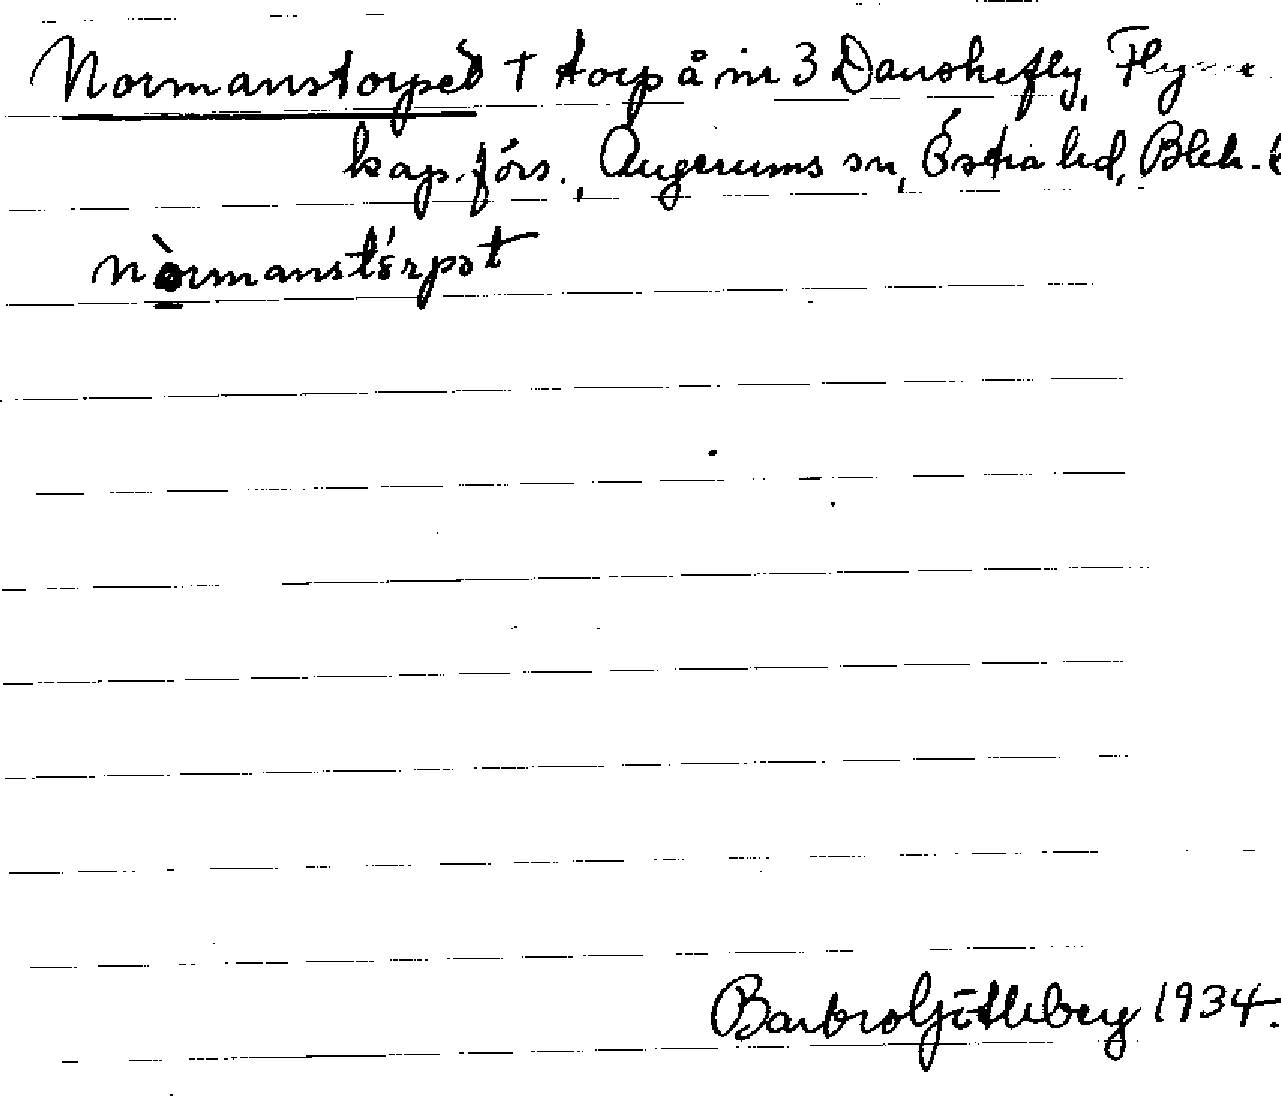 Normanstorpet † torp å nr 3 Danskefly, Flymens
kap. förs., Augerums sn, Östra hd, Blek. l
nòrmanstórpət
Barbro Götleberg 1934.